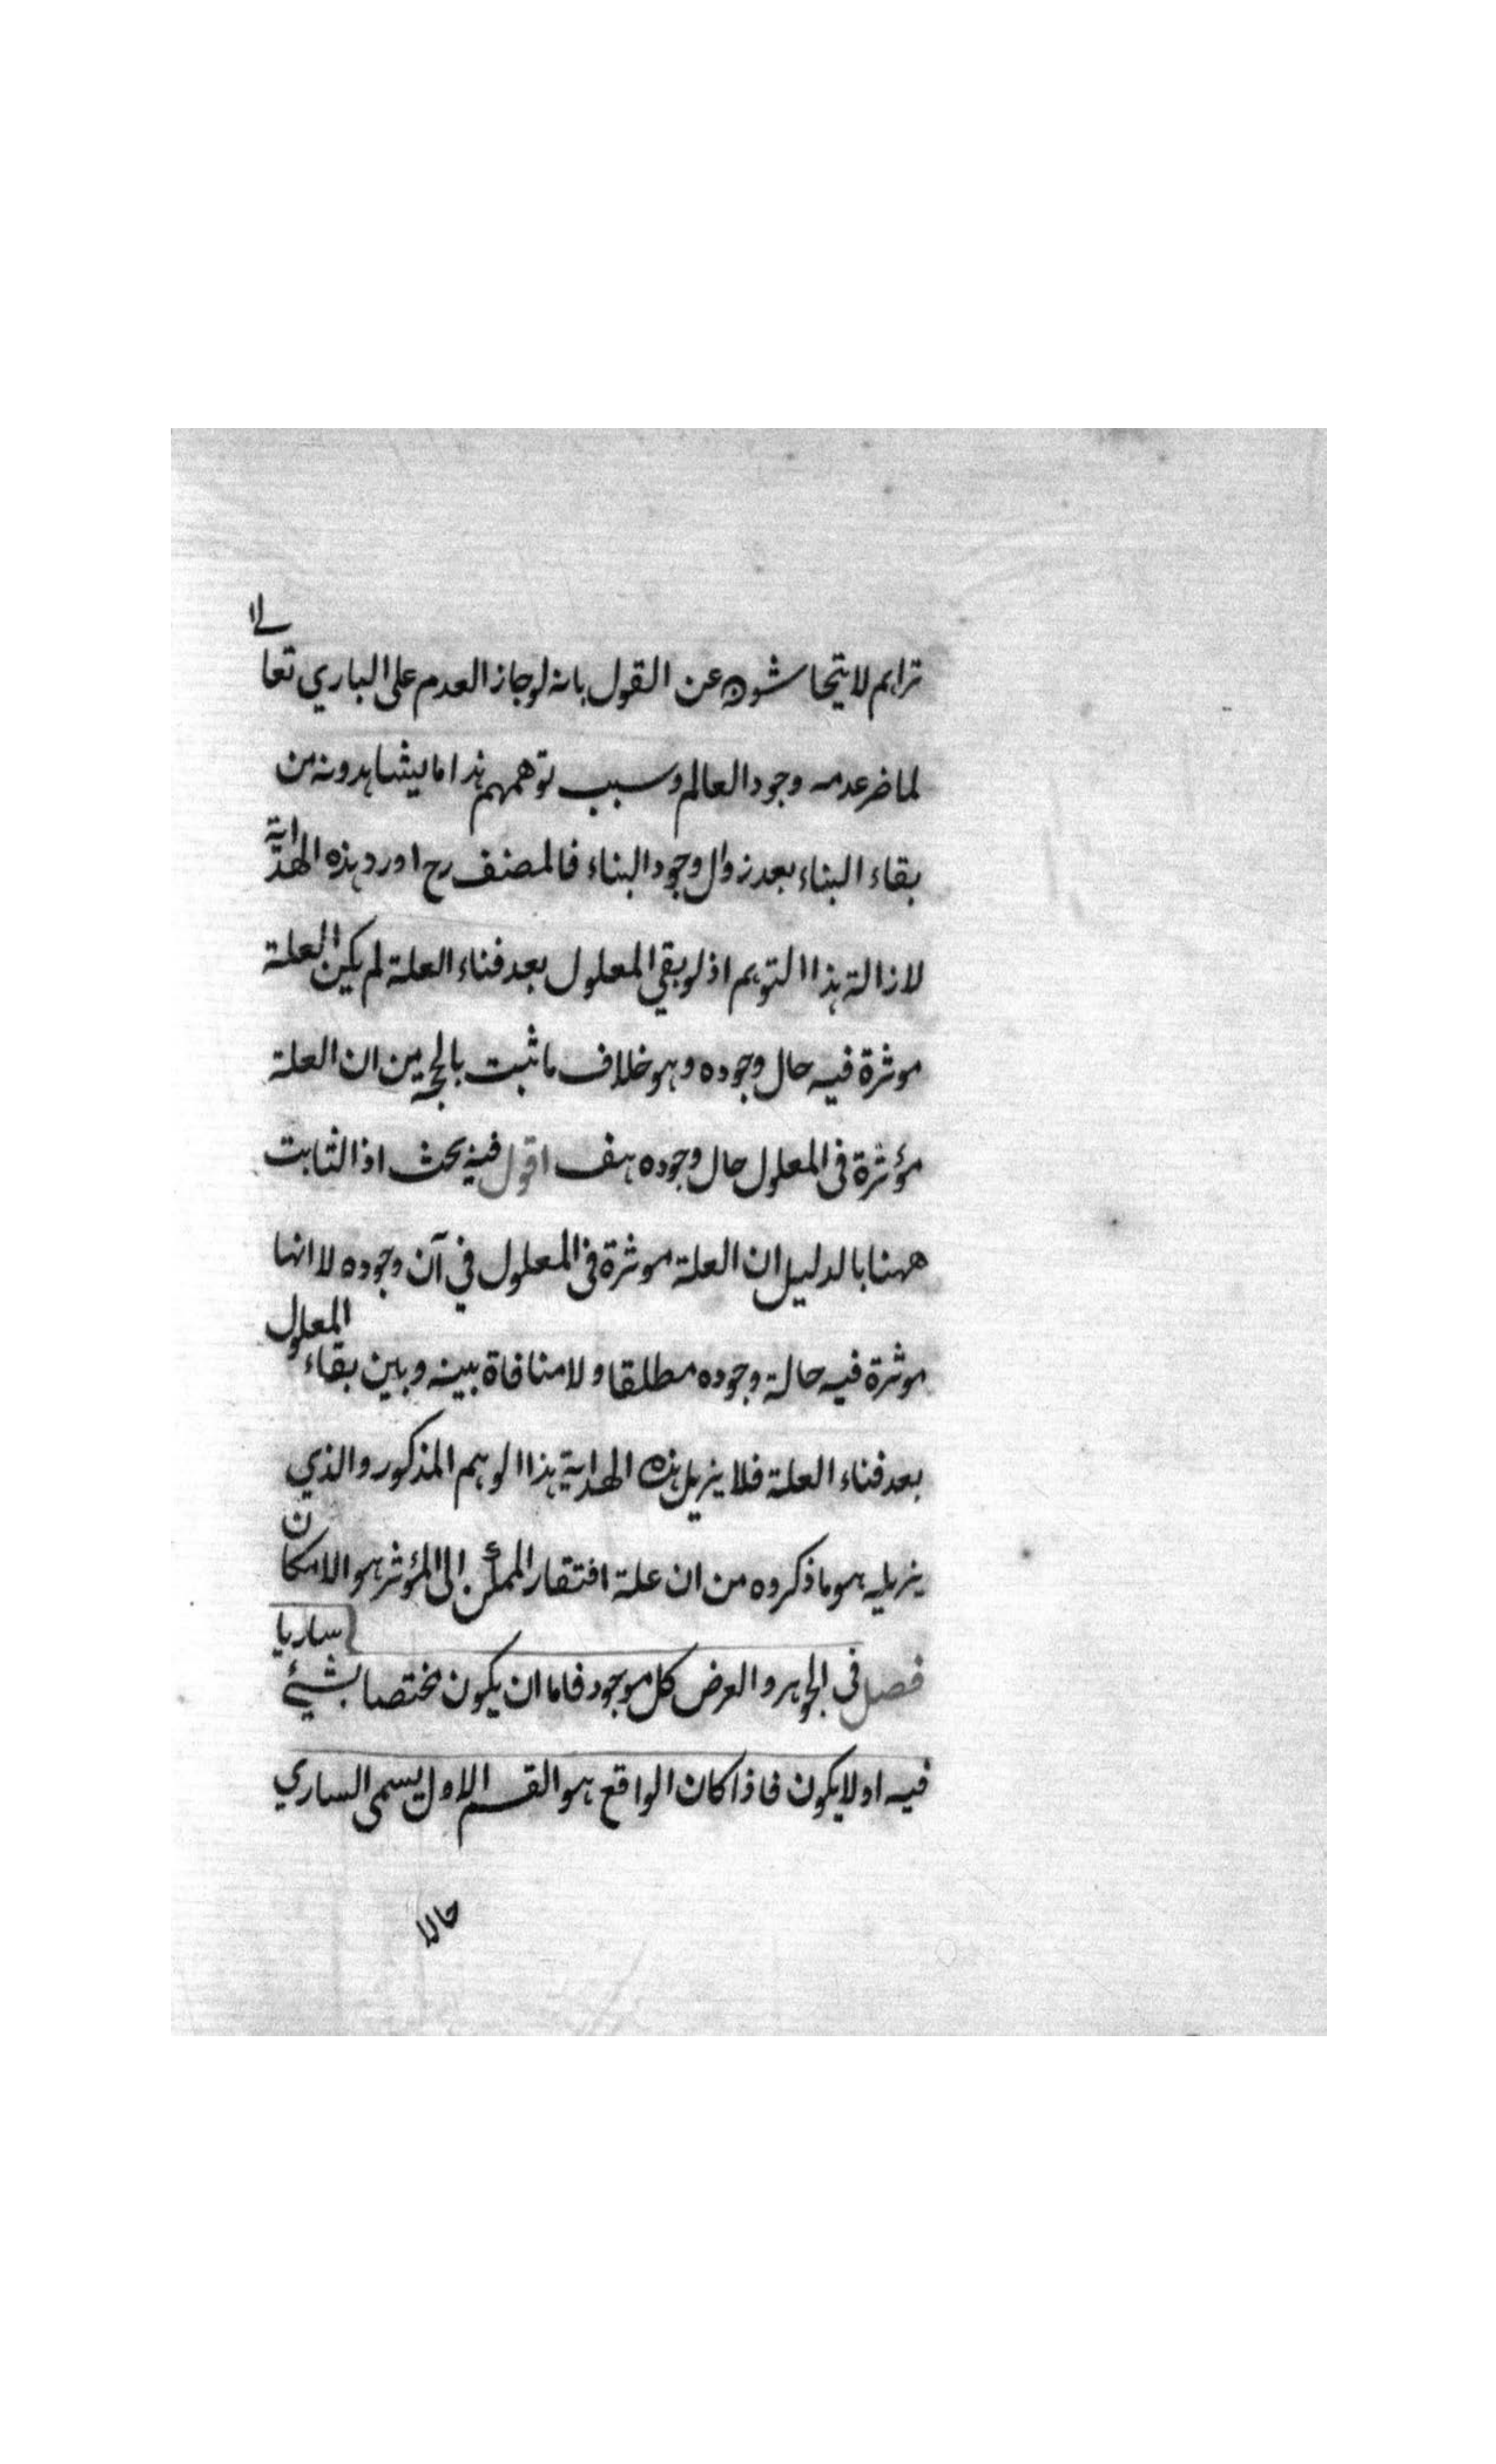 تراهم لا يتحاشون عن القول بانه لوجاز العدم على الباري تعالے
لما ضر عدمه وجود العالم وسبب توهمهم هذا ما يشاهدونه من
بقاء البناء بعد زوال وجود البناء فالمصنف رح اورد هذه الهداية
لازالة هذا التوهم اذ لو بقي المعلول بعد فناء العلة لم يكن العلة
موثرة فيه حال وجوده وهو خلاف ما ثبت بالحجة من ان العلة
مؤثرة فى المعلول حال وجوده هف اقول فيه بحث اذ الثابت
ههنا بالدليل ان العلة موثرة فى المعلول في آن وجوده لا انها
موثرة فيه حالة وجوده مطلقا ولا منافاة بينه وبين بقاء المعلول
بعد فناء العلة فلا يزيل هذه الهداية هذا الوهم المذكور والذي
يزيله هو ما ذكروه من ان علة افتقار الممكن الى المؤثر هو الامكان
فصل فى الجوهر والعرض كل موجود فاما ان يكون مختصا بشيئ ساريا
فيه او لا يكون فاذا كان الواقع هو القسم الاول يسمى الساري
حالا